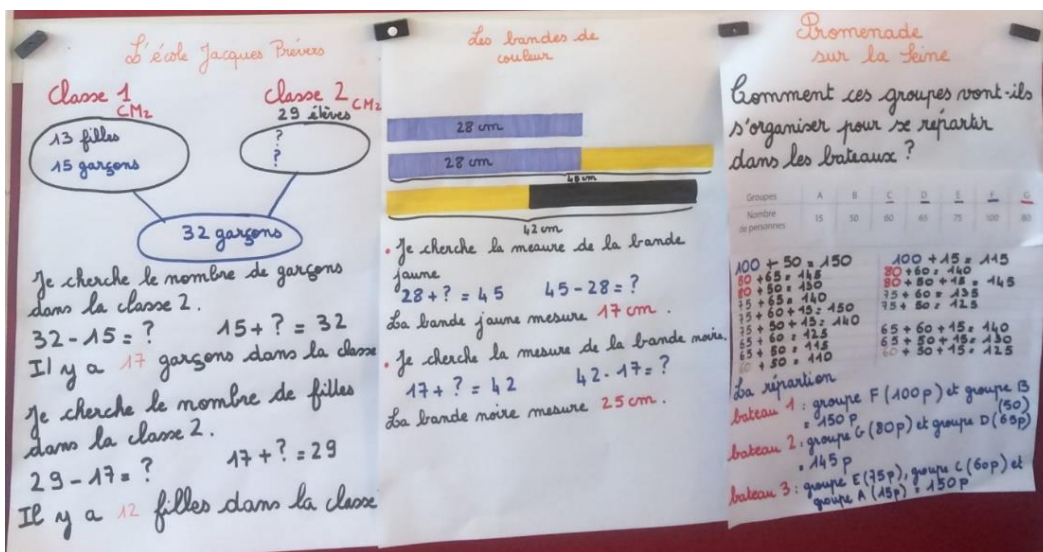 L'école Jacques Prévers
Classe 1
CM2
13 filles
15 garçons
Classe 2
CM2
29 élèves
?
?
32 garçons
Je cherche le nombre de garçons
dans la classe 2.
32 - 15 = ?    15 + ? = 32
Il y a 17 garçons dans la classe
Je cherche le nombre de filles
dans la classe 2.
29 - 17 = ?    17 + ? = 29
Il y a 12 filles dans la classe
Les bandes de
couleur
28 cm
28 cm
42 cm
• Je cherche la mesure de la bande
jaune
28 + ? = 45    45 - 28 = ?
La bande jaune mesure 17 cm.
• Je cherche la mesure de la bande noire.
17 + ? = 42    42 - 17 = ?
La bande noire mesure 25 cm.
Promenade
sur la Seine
Comment ces groupes vont-ils
s'organiser pour se répartir
dans les bateaux ?
Groupes A B C D E F G
Nombre
de personnes 15 50 60 65 75 100 80
100 + 50 = 150
80 + 65 = 145
80 + 50 = 130
75 + 65 = 140
75 + 60 + 15 = 150
75 + 50 + 15 = 140
65 + 60 = 125
65 + 50 = 115
60 + 50 = 110
100 + 15 = 115
80 + 60 = 140
80 + 50 + 15 = 145
75 + 60 = 135
75 + 50 = 125
65 + 60 + 15 = 140
65 + 50 + 15 = 130
60 + 50 + 15 = 125
La répartion
bateau 1 : groupe F (100p) et groupe B
(50)
= 150 p
bateau 2 : groupe G (80p) et groupe D (65p)
= 145 p
bateau 3 : groupe E (75p), groupe C (60p) et
groupe A (15p) = 150p